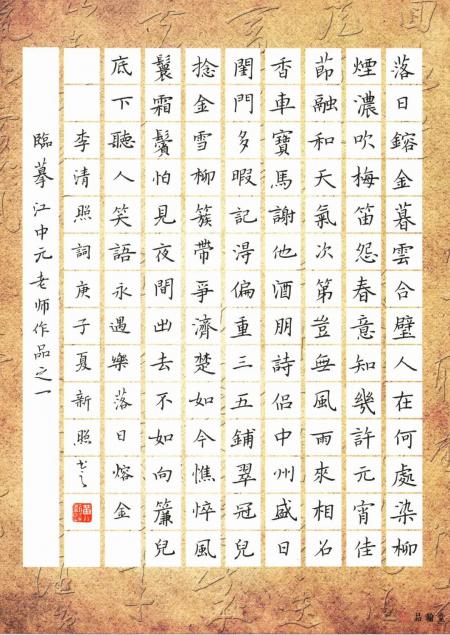 落日鎔金暮雲合璧人在何處染柳
煙濃吹梅笛怨春意知幾許元宵佳
莭融和天氣次第豈無風雨來相召
香車寶馬謝他酒朋詩侶中州盛日
閨門多暇記淂偏重三五鋪翠冠兒
捻金雪柳簇帶爭濟楚如今憔悴風
鬟霜鬢怕見夜間出去不如向簾兒
底下聽人笑語永遇樂落日熔金
李清照詞庚子夏新照书之
臨摹江中元老师作品之一
品翰堂